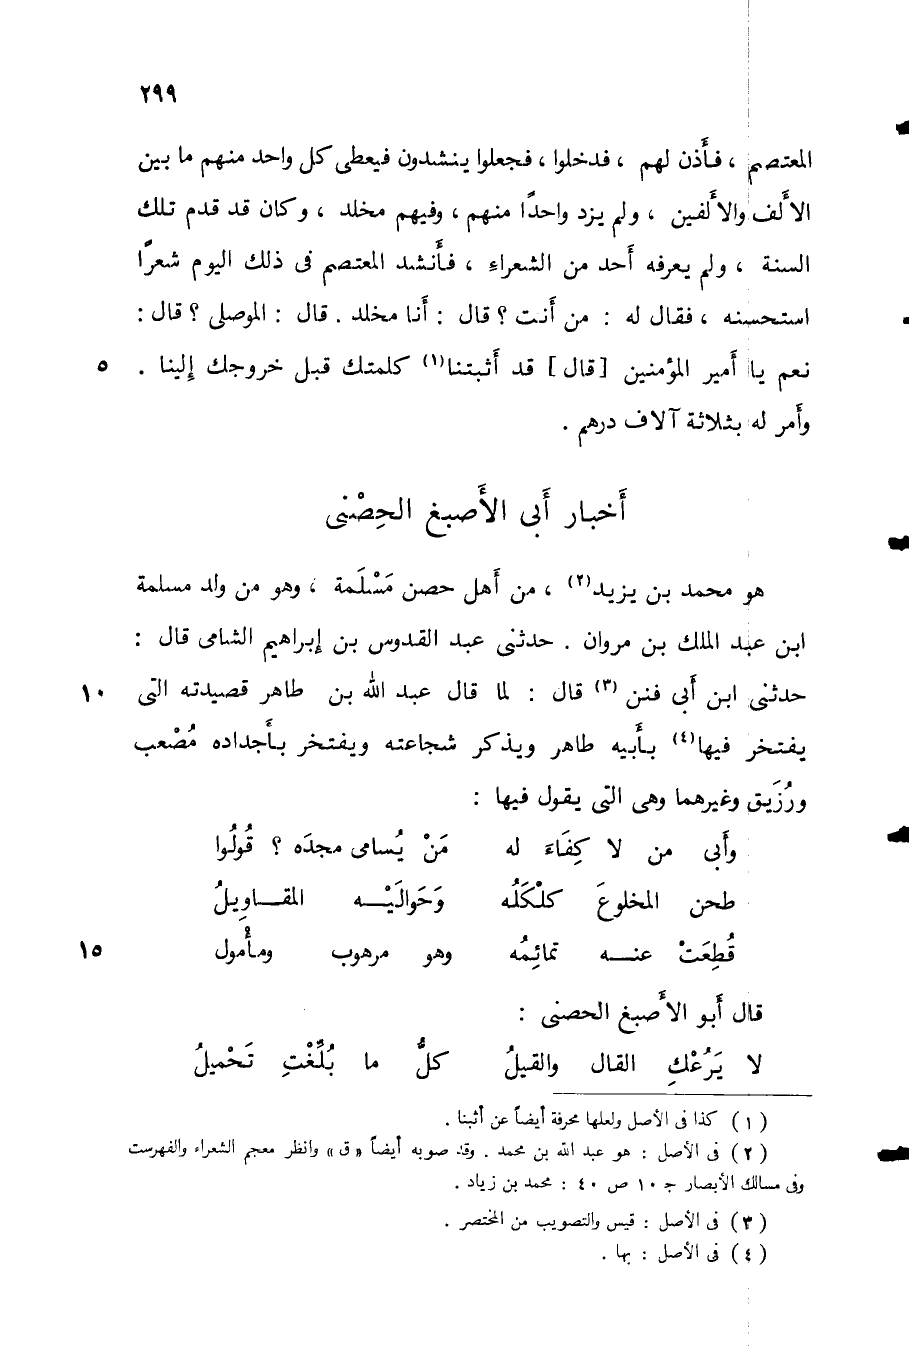 ٢٩٩
المعتصم ، فأذن لهم ، فدخلوا ، فجعلوا ينشدون فيعطى كل واحد منهم ما بين
الألف والألفين ، ولم يزد واحدًا منهم ، وفيهم مخلد ، وكان قد قدم تلك
السنة ، ولم يعرفه أحد من الشعراء ، فأنشد المعتصم فى ذلك اليوم شعرًا
استحسنه ، فقال له : من أنت ؟ قال : أنا مخلد . قال : الموصلى ؟ قال :
نعم يا أمير المؤمنين [ قال ] قد أثبتنا(١) كلمتك قبل خروجك إلينا . ٥
وأمر له بثلاثة آلاف درهم .
أخبار أبى الأصبغ الحِصْنى
هو محمد بن يزيد(٢) ، من أهل حصن مَسْلَمة ، وهو من ولد مسلمة
ابن عبد الملك بن مروان . حدثنى عبد القدوس بن إبراهيم الشامى قال :
حدثنى ابن أبى فنن (٣) قال : لما قال عبد الله بن طاهر قصيدته التى ١٠
يفتخر فيها(٤) بأبيه طاهر ويذكر شجاعته ويفتخر بأجداده مُصْعب
ورُزَيق وغيرهما وهى التى يقول فيها :
وأبى من لا كِفَاءَ له مَنْ يُسامى مجدَه ؟ قُولُوا
طحن المخلوعَ كلْكَلُه وَحَوالَيْـــه المقـــاوِيلُ
قُطِعَتْ عنـــه تمائِمُه وهو مرهوب ومأْمول ١٥
قال أبو الأصبغ الحصنى :
لا يَرُعْكِ القال والقيلُ كلُّ ما بُلِّغْتِ تَحْميلُ
( ١ ) كذا فى الأصل ولعلها محرفة أيضاً عن أثبنا .
( ٢ ) فى الأصل : هو عبد الله بن محمد . وقد صوبه أيضاً « ق » وانظر معجم الشعراء والفهرست
وفى مسالك الأبصار جـ ١٠ ص ٤٠ : محمد بن زياد .
( ٣ ) فى الأصل : قيس والتصويب من المختصر .
( ٤ ) فى الأصل : بها .